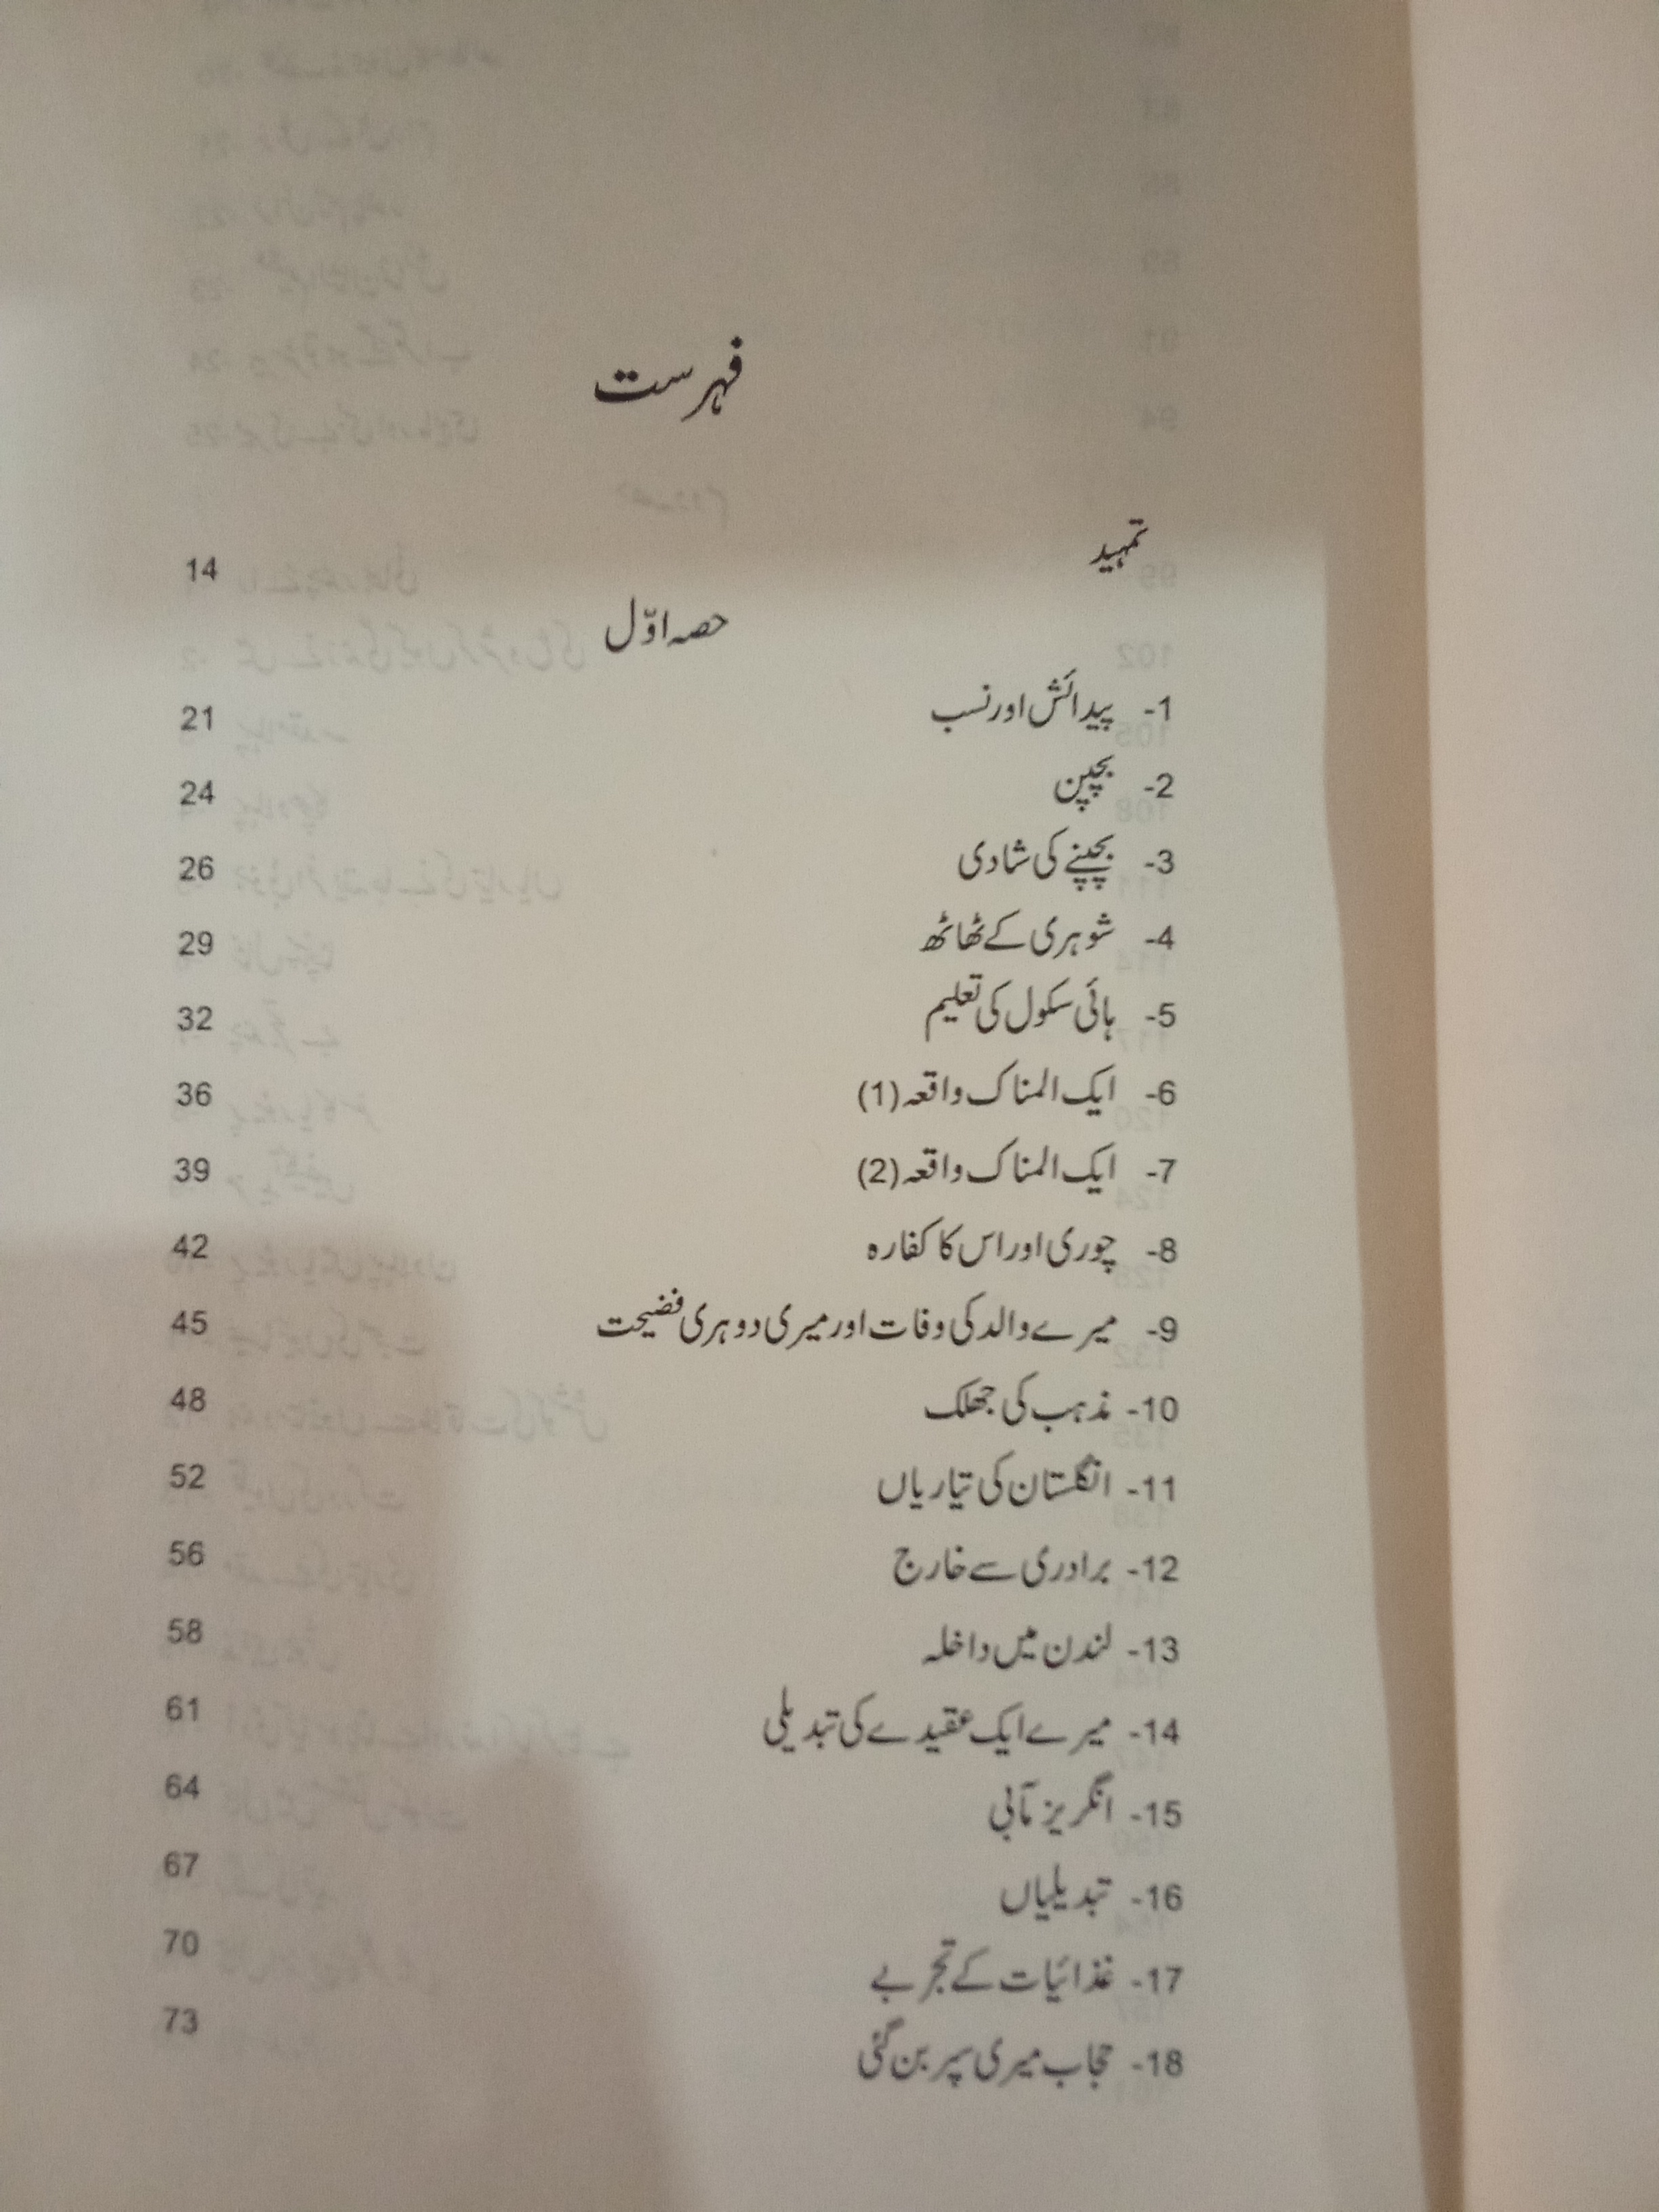 فہرست
تمہید 14
حصہ اوّل
1- پیدائش اور نسب 21
2- بچپن 24
3- بچپنے کی شادی 26
4- شوہری کے ٹھاٹھ 29
5- ہائی سکول کی تعلیم 32
6- ایک المناک واقعہ (1) 36
7- ایک المناک واقعہ (2) 39
8- چوری اور اس کا کفارہ 42
9- میرے والد کی وفات اور میری دوہری فضیحت 45
10- مذہب کی جھلک 48
11- انگلستان کی تیاریاں 52
12- برادری سے خارج 56
13- لندن میں داخلہ 58
14- میرے ایک عقیدے کی تبدیلی 61
15- انگریز مآبی 64
16- تبدیلیاں 67
17- غذائیات کے تجربے 70
18- حجاب میری سپر بن گئی 73